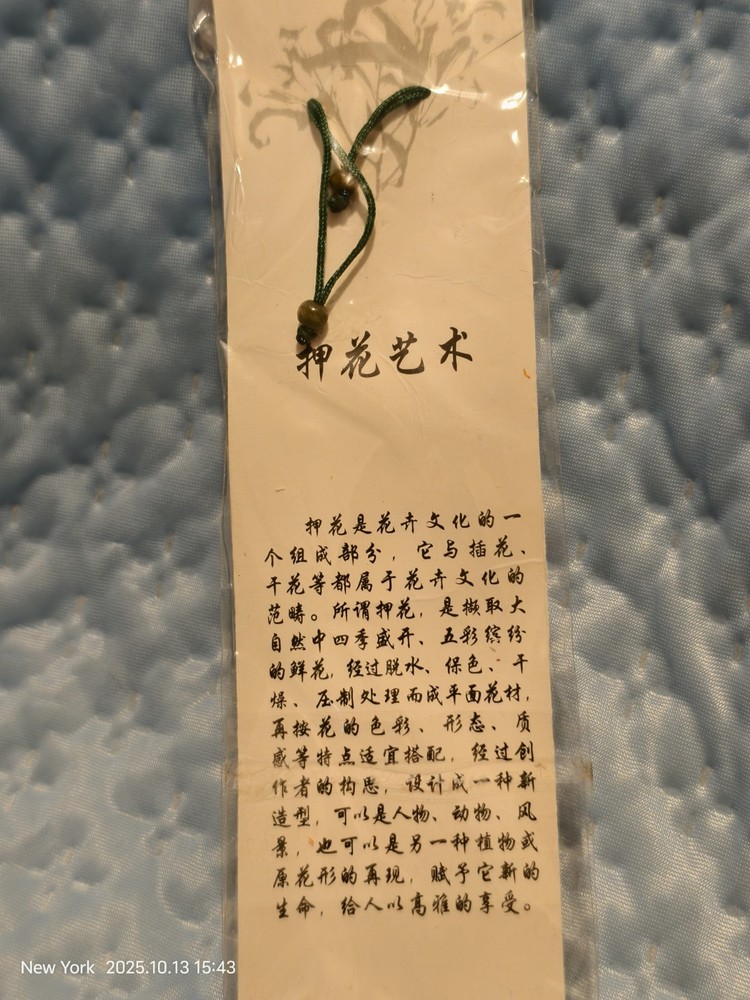 押花艺术
押花是花卉文化的一
个组成部分，它与插花、
干花等都属于花卉文化的
范畴。所谓押花，是撷取大
自然中四季盛开、五彩缤纷
的鲜花，经过脱水、保色、干
燥、压制处理而成平面花材，
再按花的色彩、形态、质
感等特点适宜搭配，经过创
作者的构思，设计成一种新
造型，可以是人物、动物、风
景，也可以是另一种植物或
原花形的再现，赋予它新的
生命，给人以高雅的享受。
New York 2025.10.13 15:43